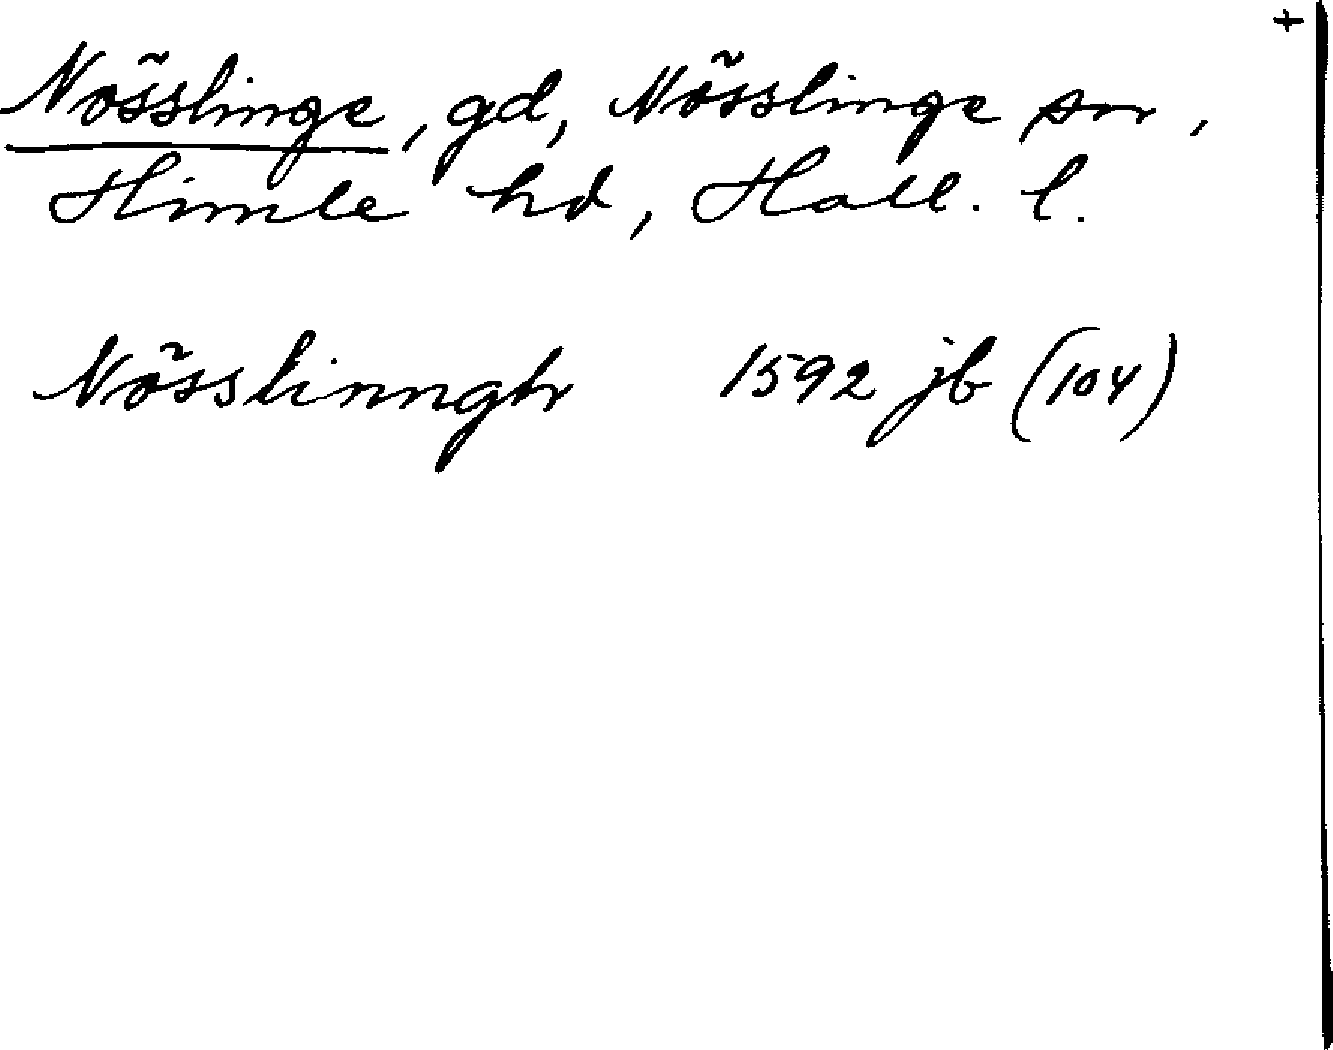 +
Nösslinge, gd, Nösslinge sn,
Himle hd, Hall. l.
Nösslinngh 1592 jb (104)